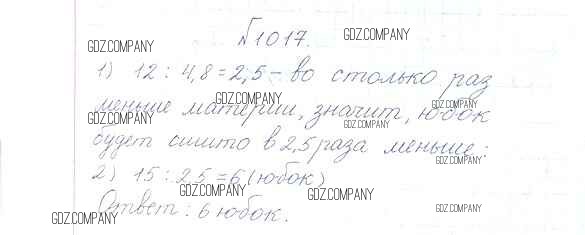 №1017.
1) 12 : 4,8 = 2,5 – во столько раз
меньше материи, значит, юбок
будет сшито в 2,5 раза меньше;
2) 15 : 2,5 = 6 (юбок)
Ответ: 6 юбок.
GDZ.COMPANY
GDZ.COMPANY
GDZ.COMPANY
GDZ.COMPANY
GDZ.COMPANY
GDZ.COMPANY
GDZ.COMPANY
GDZ.COMPANY
GDZ.COMPANY
GDZ.COMPANY
GDZ.COMPANY